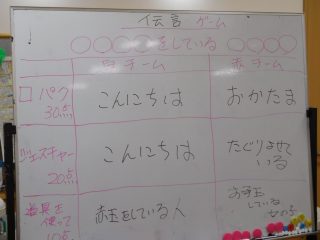 伝言ゲーム
○○○○をしている ○○○○
白チーム 赤チーム
口パク
30点
こんにちは おかたま
ジェスチャー
20点
こんにちは たぐりよせて
いる
道具を
使って
10点
赤玉をしている人
お手玉
している
女の子